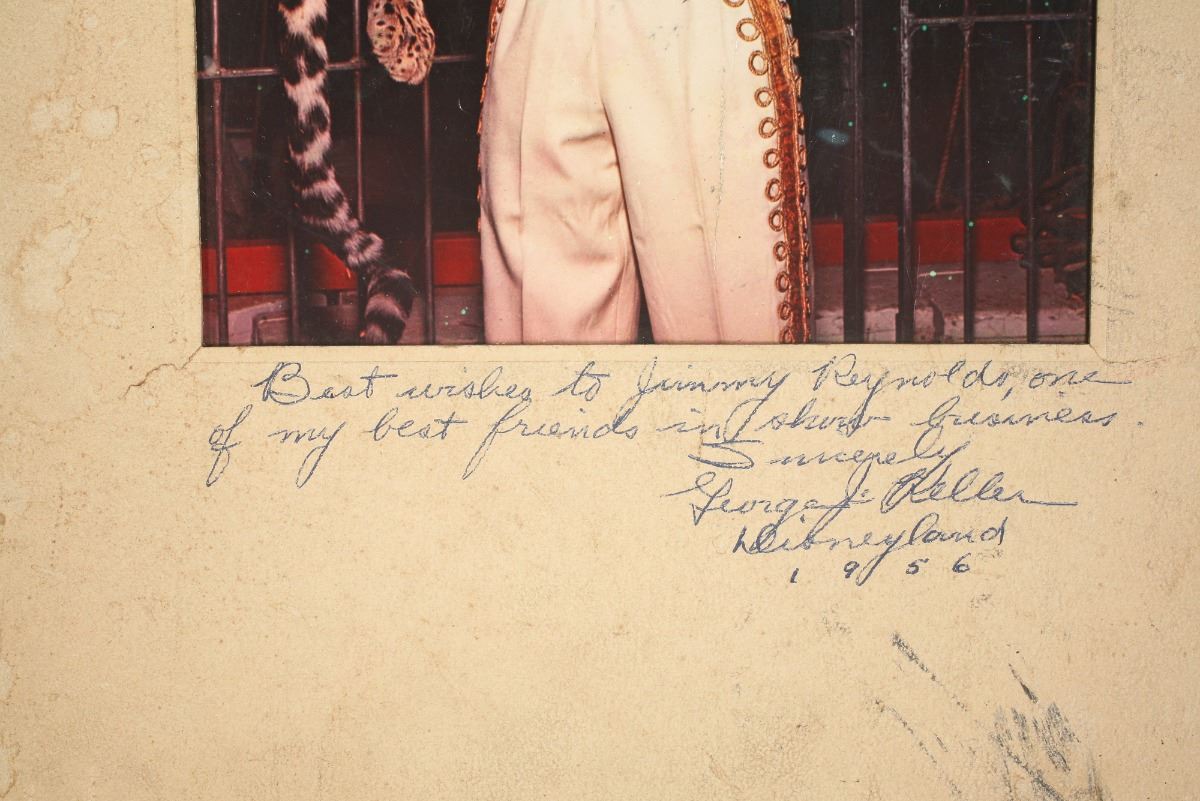 Best wishes to Jimmy Reynolds, one
of my best friends in show business.
Sincerely
George J. Keller
Disneyland
1956